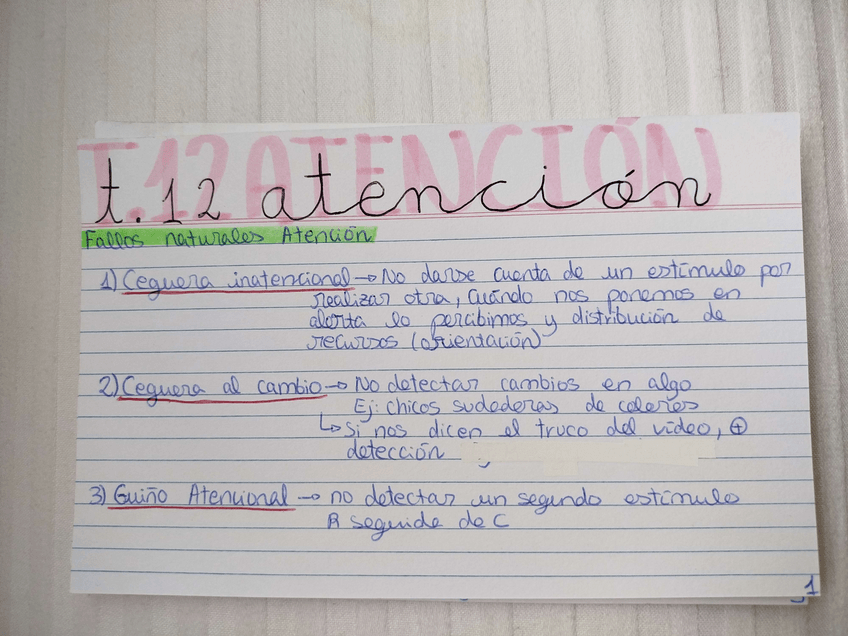 T.12 ATENCIÓN
t.12 atención
Fallos naturales Atención
1) Ceguera inatencional → No darse cuenta de un estímulo por
realizar otra, Cuándo nos ponemos en
alerta lo percibimos y distribución de
recursos (orientación)
2) Ceguera al cambio → No detectar cambios en algo
Ej: chicos sudaderas de colores
↳ Si nos dicen el truco del vídeo, ⊕
detección
3) Guiño Atencional → no detectar un segundo estímulo
R seguida de C
1